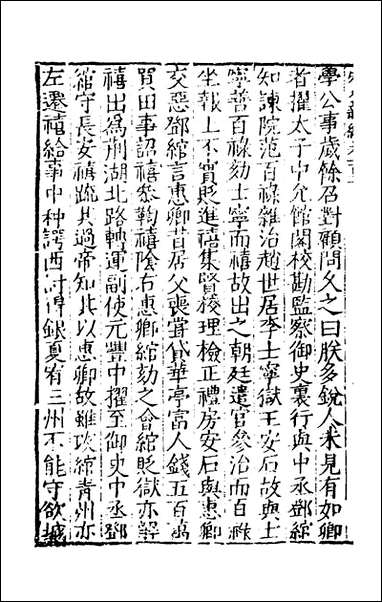 學公事歲餘召對顧問久之曰朕多銳人未見有如卿
者擢太子中允館閣校勘監察御史裏行與中丞鄧綰
知諫院范百祿雜治趙世居李士寧獄王安石故與士
寧善百祿劾士寧而禧故出之朝廷遣官參治而百祿
坐報上不實貶進禧集賢校理檢正禮房安石與惠卿
交惡鄧綰言惠卿昔居父喪嘗貸華亭富人錢五百萬
買田事詔禧參鞫禧陰右惠卿綰劾之會綰貶獄亦解
禧出為荆湖北路轉運副使元豐中擢至御史中丞鄧
綰守長安禧疏其過帝知其以惠卿故雖改綰青州亦
左遷禧給事中种諤西討得銀夏宥三州不能守欲城